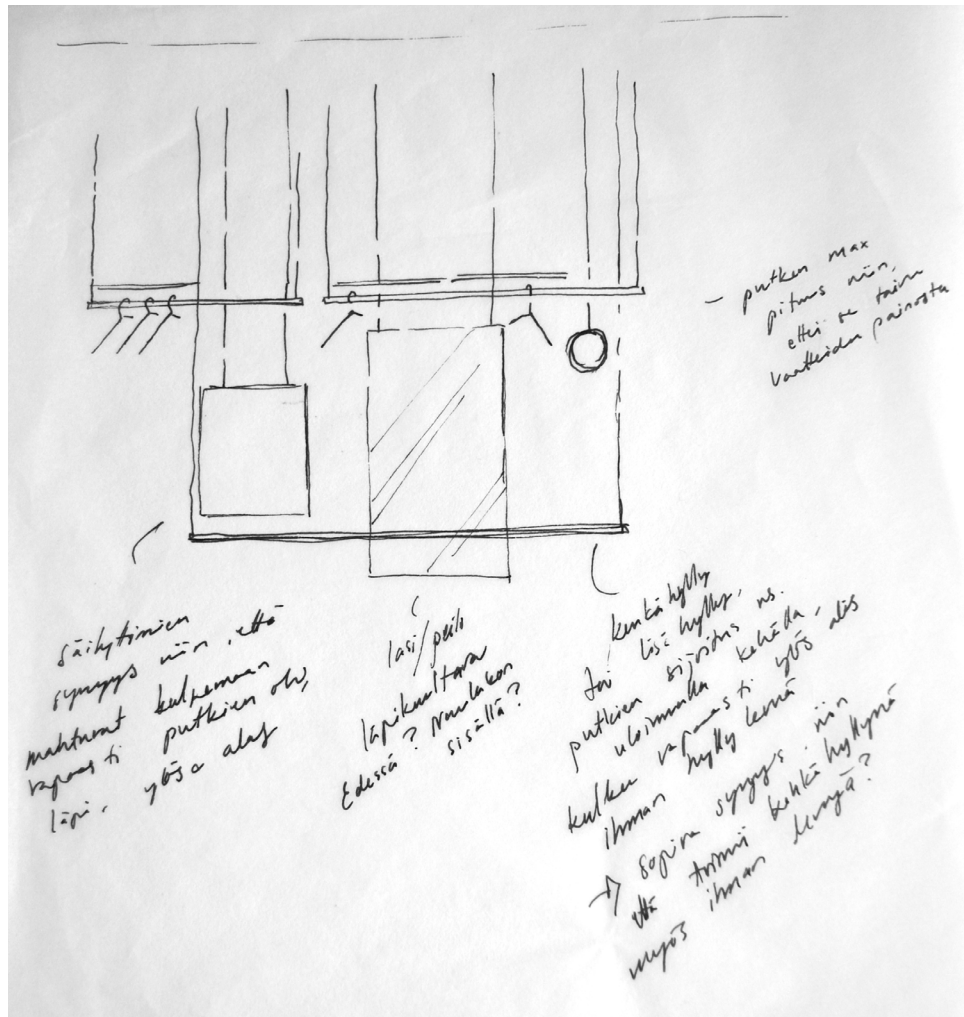 – putken max
pituus niin,
ettei se taivu
vaatteiden painosta
säilyttimien
syvyys niin, että
mahtuvat kulkemaan
vapaasti putkien ohi,
läpi, ylös a alas
lasi/peili
läpikuultava
Edessä? Naulakon
sisällä?
kenkähylly
tai lisä hylly,
putkien sijoitus ns.
uloimmalla kehällä,
kulkee vapaasti ylös alas
ihman hylly kenä
→ sopiva syvyys, niin
että toimii kenkähyllynä
myös ihman